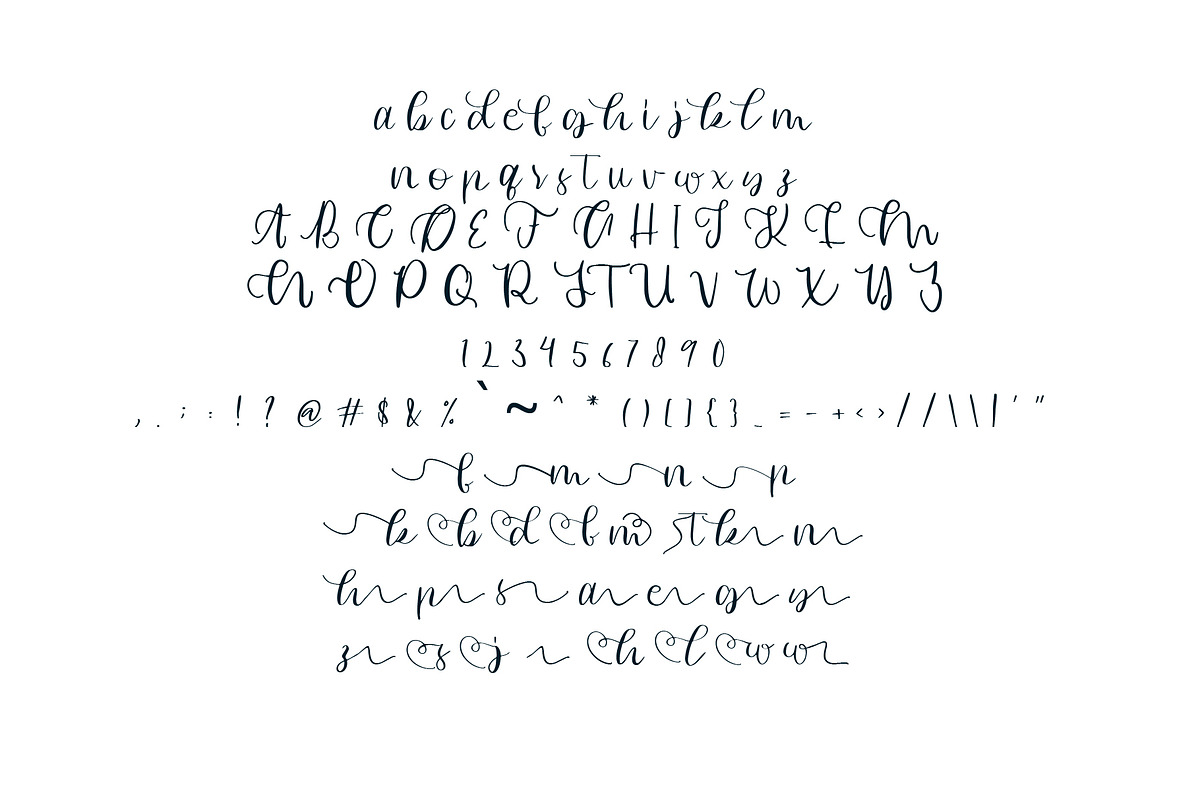 a b c d e f g h i j k l m
n o p q r s t u v w x y z
A B C D E F G H I J K L M
N O P Q R S T U V W X Y Z
1 2 3 4 5 6 7 8 9 0
, . ; : ! ? @ # $ & % ` ~ ^ * ( ) [ ] { } _ = - + < > / / \ \ | ' "
f m n p
k b d f m t k m
h p s a e g y
z s j h l w w